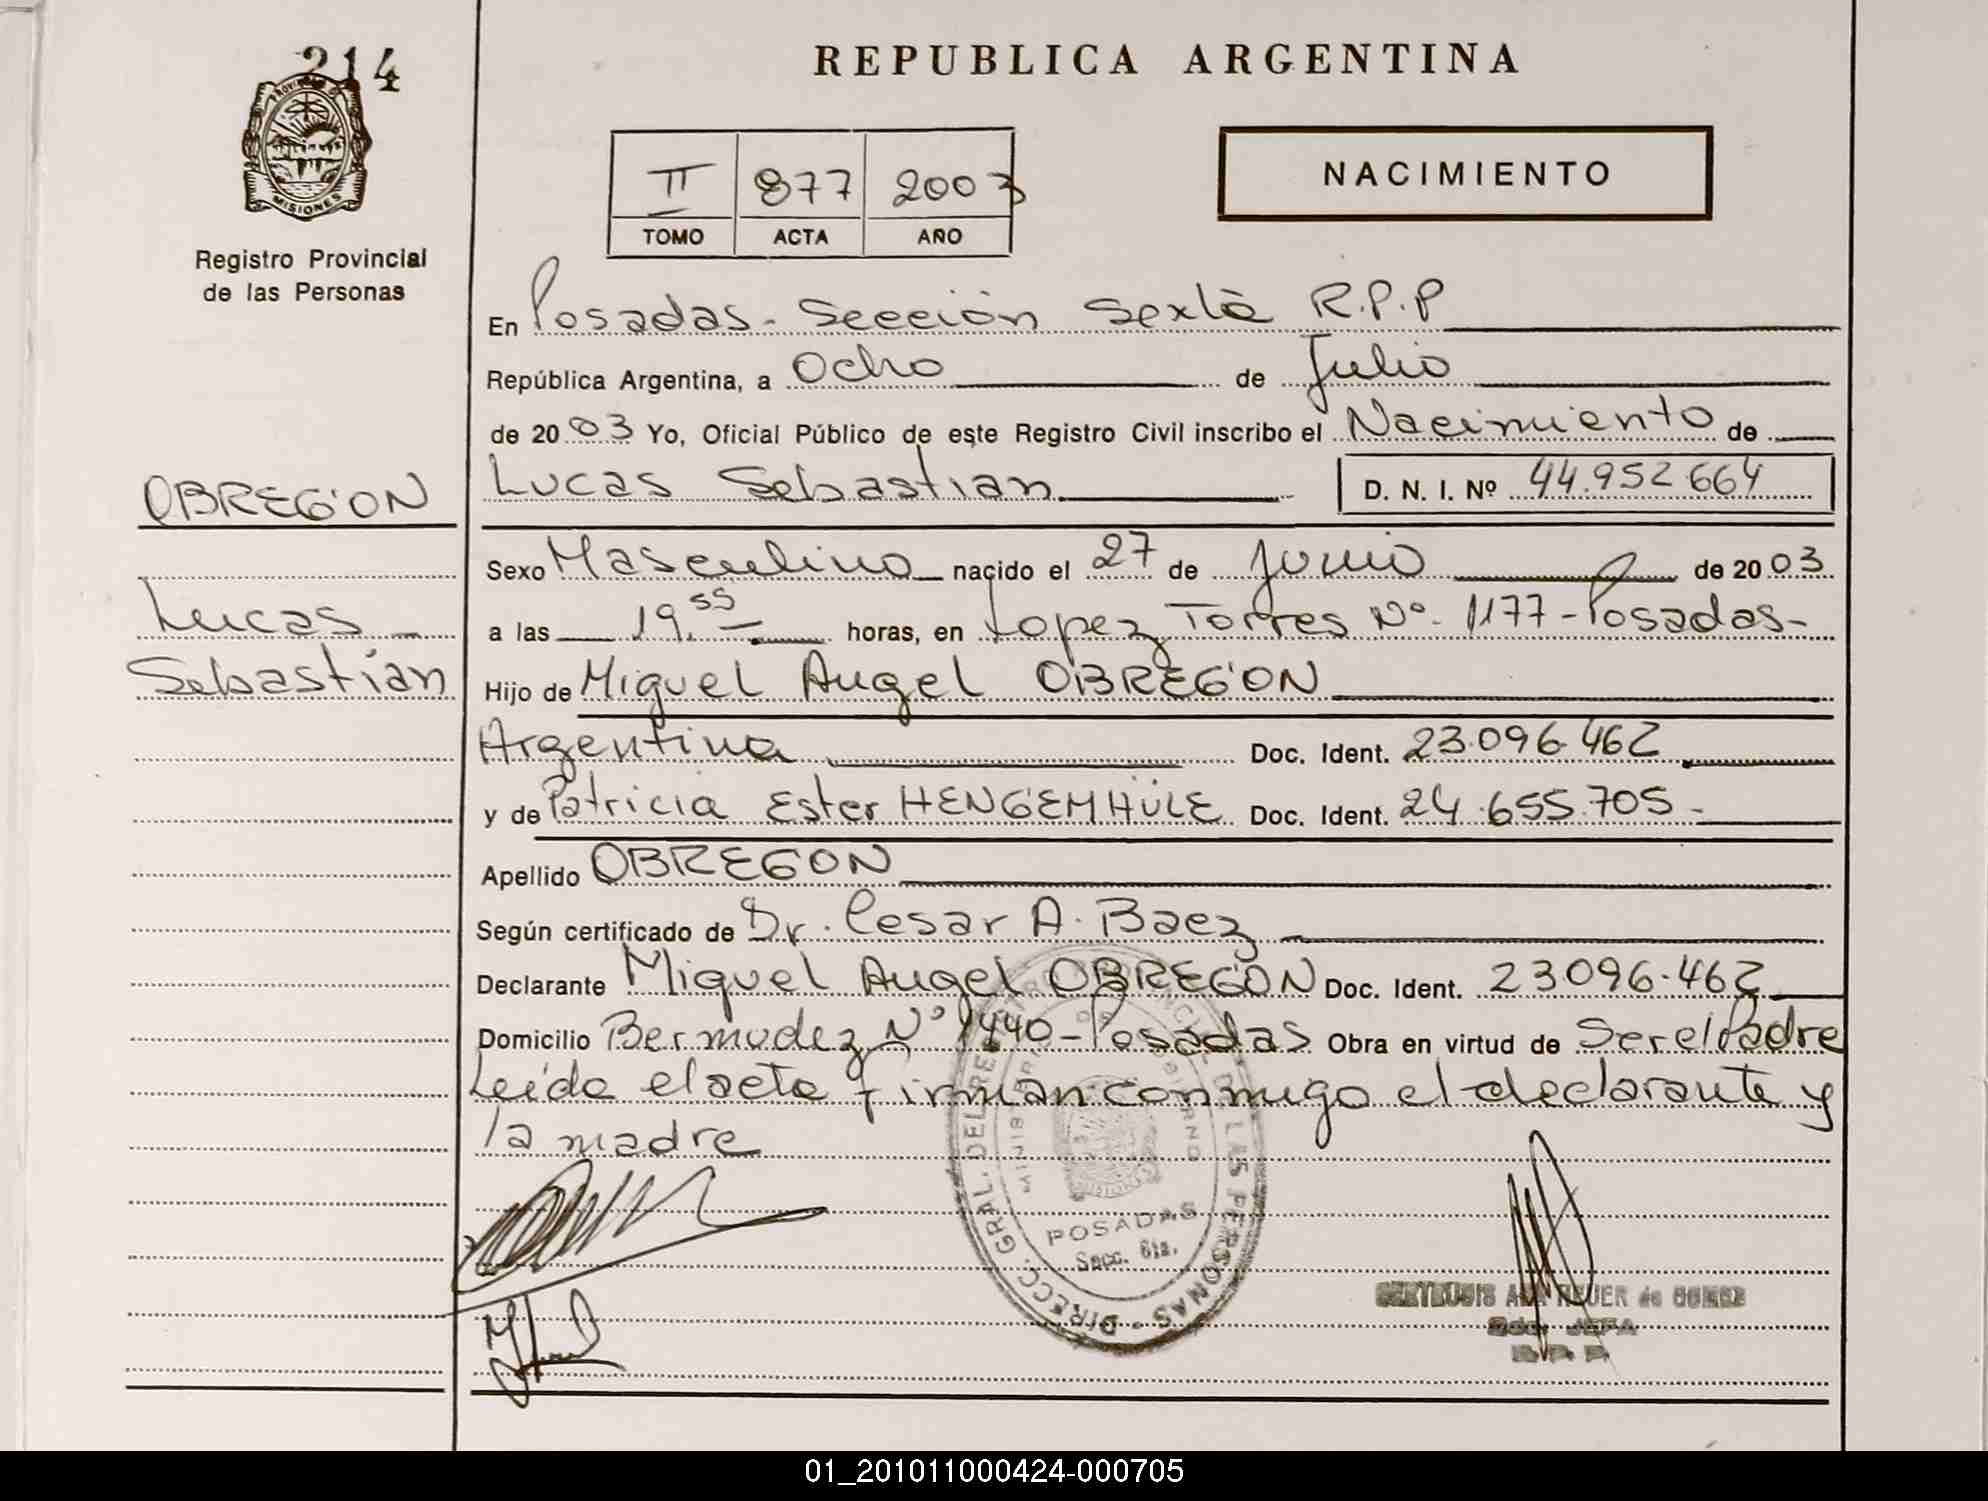 214
MISIONES
Registro Provincial
de las Personas
REPUBLICA ARGENTINA
II 877 2003
TOMO ACTA AÑO
NACIMIENTO
En Posadas - Sección Sexta R.P.P
República Argentina, a Ocho de Julio
de 20 03 Yo, Oficial Público de este Registro Civil inscribo el Nacimiento de
OBREGON
Lucas Sebastian D. N. I. Nº 44.952.664
Sexo Masculino nacido el 27 de Junio de 20 03
Lucas
a las 19.55 horas, en Lopez Torres Nº 1177 - Posadas -
Sebastián
Hijo de Miguel Angel OBREGON
Argentina Doc. Ident. 23.096.462
y de Patricia Ester HENGEMHÜLE Doc. Ident. 24.655.705 -
Apellido OBREGON
Según certificado de Dr. Cesar A. Baez
Declarante Miguel Angel OBREGON Doc. Ident. 23096.462
Domicilio Bermudez Nº 1440 - Posadas Obra en virtud de Ser el Padre
Leida el acta firman conmigo el declarante y
la madre
DIRECC. GRAL. DEL REGISTRO PROVINCIAL DE LAS PERSONAS
POSADAS
Secc. 6ta.
de GOMEZ
JEFA
01_201011000424-000705